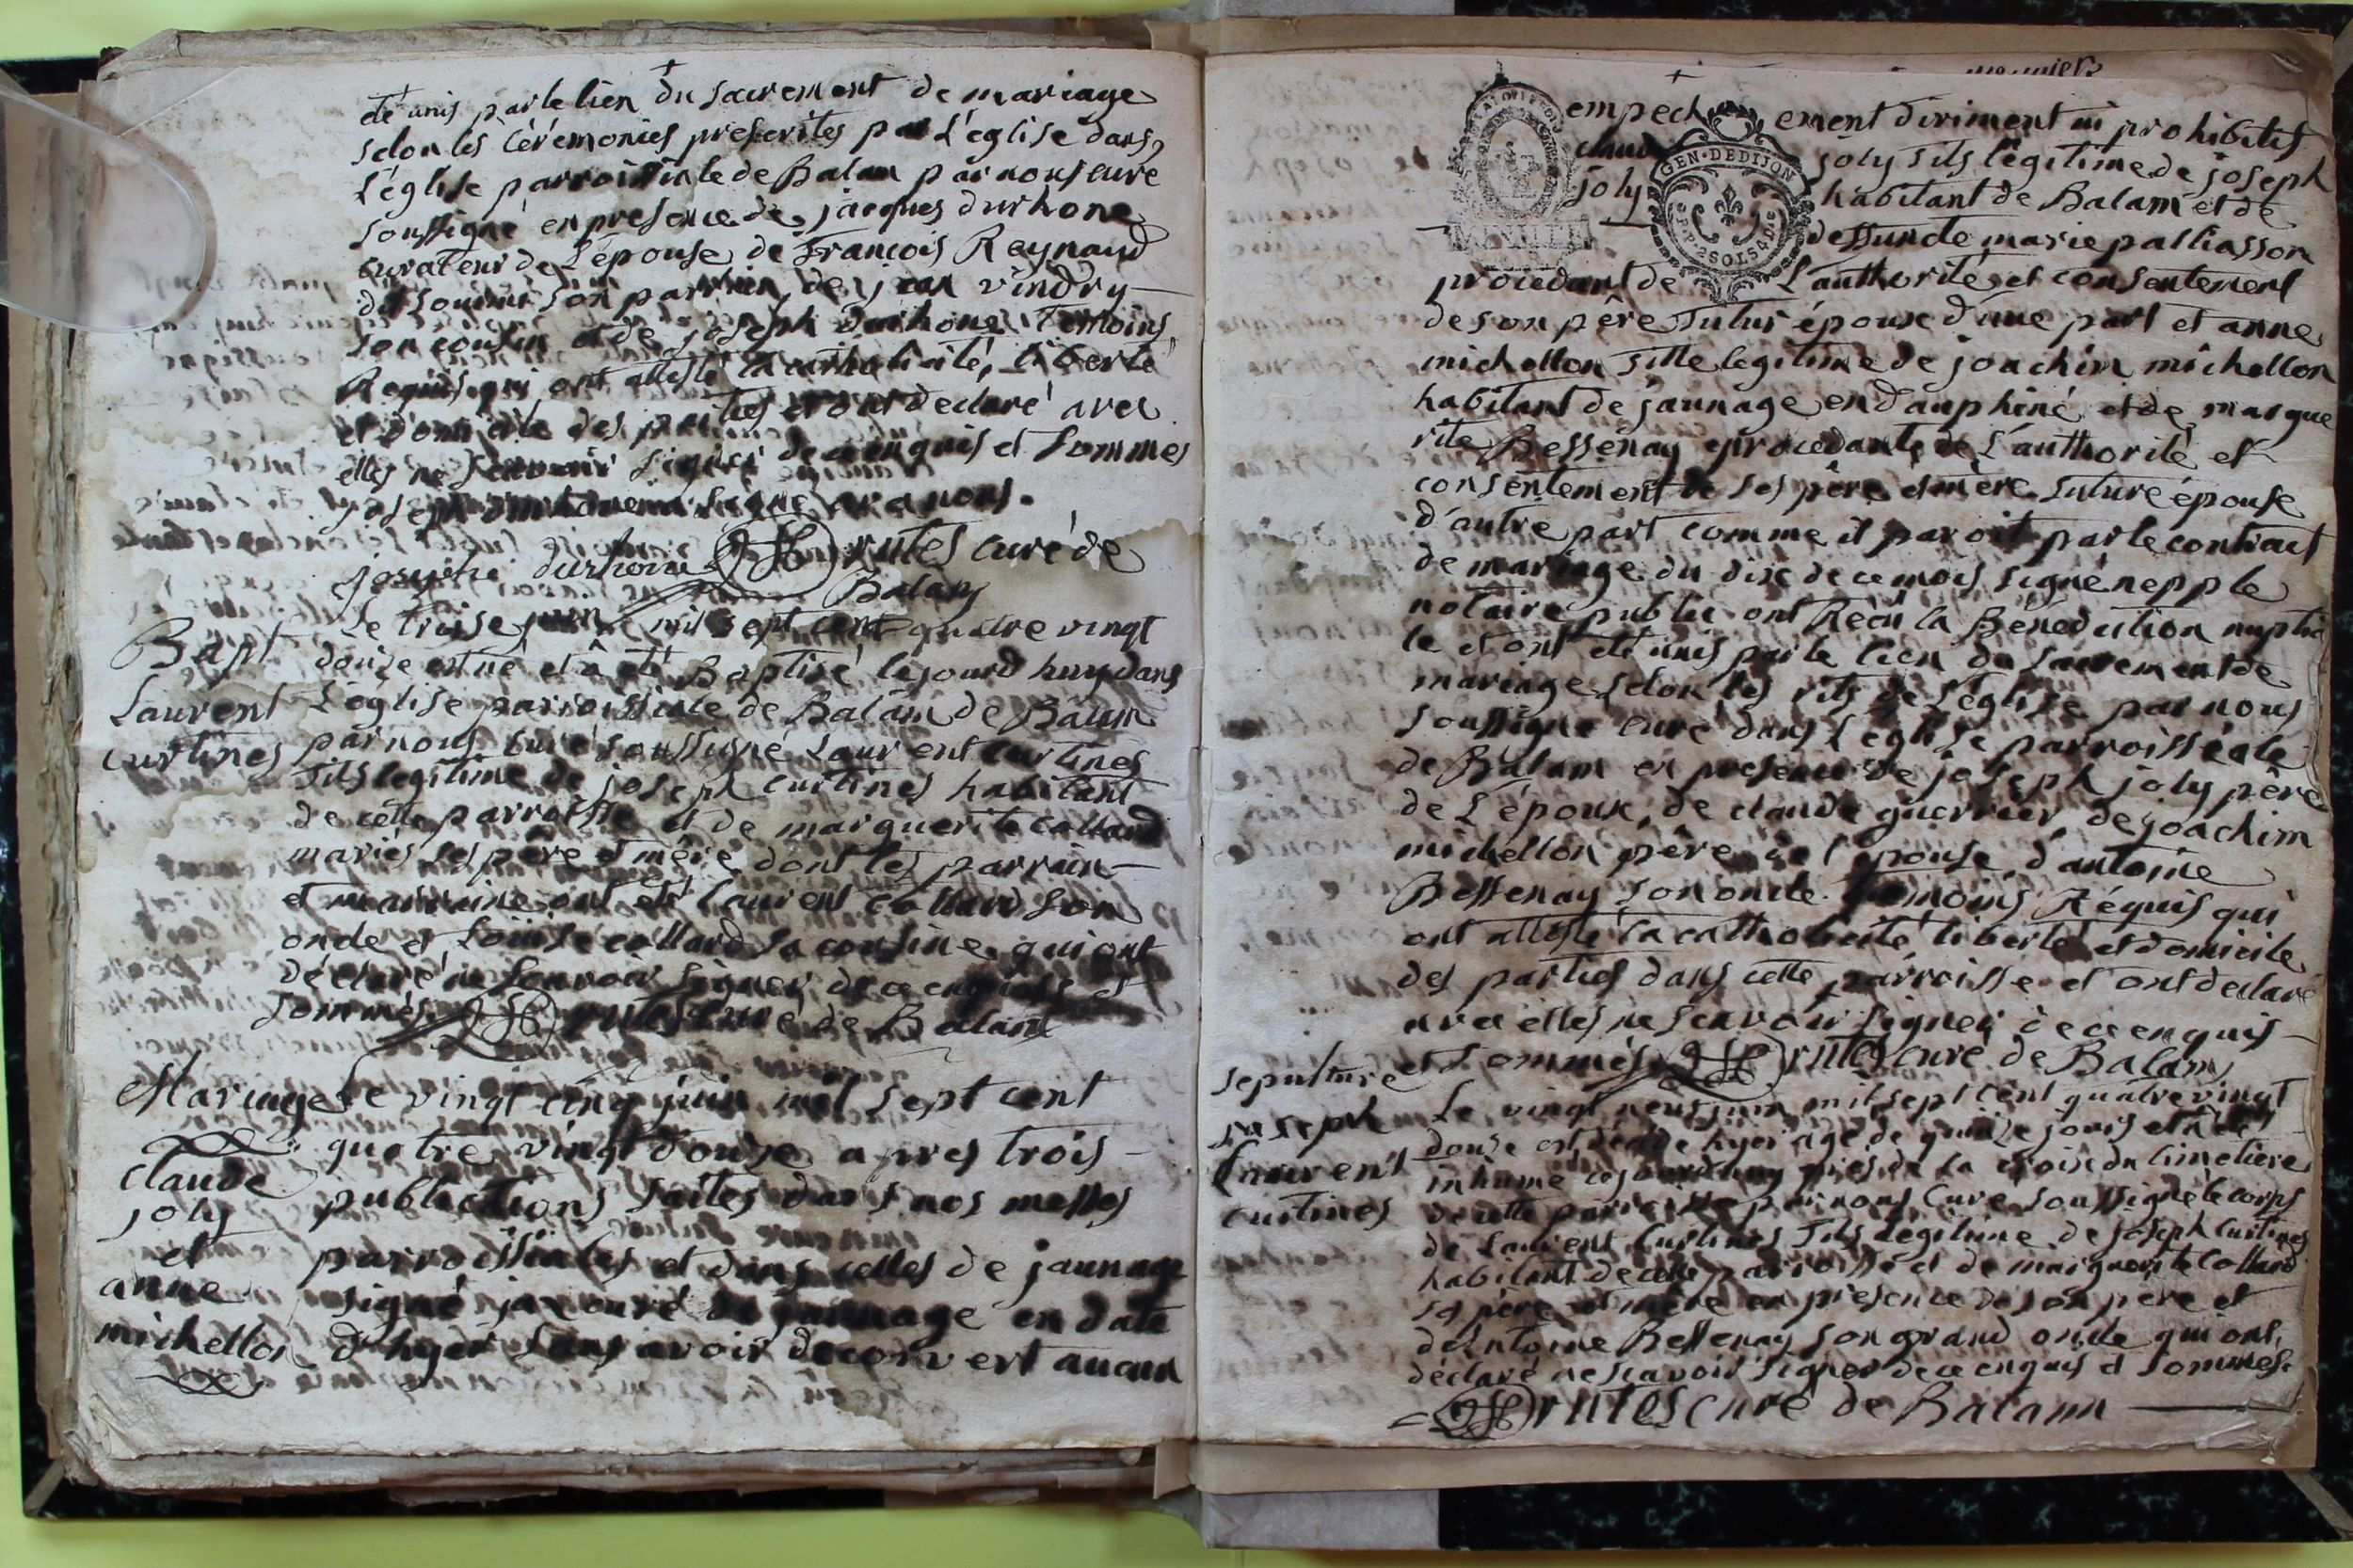 été unis par le lien du sacrement de mariage
selon les cérémonies prescrites par L'église dans
L'église parroissiale de Balan par nous curé
soussigné en presence de jacques durhone
curateur de L'épouse de François Reynaud
son parrain, de jean vindry
son cousin et de joseph durhone Temoins
Requis qui ont attesté la catholicité, liberté
et domicile des parties et ont declaré avec
elles ne sçavoir signer de ce enquis et sommes
joseph durhone signé avec nous.
joseph durhone rutes curé de
Balan
Bapt
Laurent
curtines
Le treise juin mil sept cent quatre vingt
douze est né et a été Baptisé cejourd huy dans
L'église parroissiale de Balam de Balam
par nous curé soussigné Laurent curtines
fils legitime de joseph curtines habitant
de cette parroisse et de marguerite collard
mariés ses père et mère dont les parrain
et marraine ont été laurent collard son
oncle et Loüise collard sa cousine qui ont
déclaré ne sçavoir signer de ce enquis et
sommés rutes curé de Balam
Mariage
claude
joly
et
anne
michellon
Le vingt cinq juin mil sept cent
quatre vingt douze apres trois
publications faites dans nos messes
parroissiales et dans celles de jaunage
signé curé de jaunage en date
d'hyer sans avoir decouvert aucun
empechement diriment ni prohibitif
claude joly fils légitime de joseph
joly habitant de Balam et de
deffunte marie palliasson
GEN·DE DIJON
2 SOLS 4 D
procedant de L'authorité et consentement
de son père futur époux d'une part et anne
michellon fille legitime de joachim michellon
habitant de jaunage en Dauphiné et de margue
rite Bessenay procedante de L'authorité et
consentement de ses père et mère future épouse
d'autre part comme il paroit par le contract
de mariage du dix de ce mois signé nepple
notaire public ont Reçu la Bénédiction nuptia
le et ont été unis par le lien du sacrement de
mariage selon les rits de L'église par nous
soussigné curé dans L'église parroissiale
de Balam en presence de joseph joly père
de L'époux, de claude guerrier, de joachim
michellon père de l'épouse, d'antoine
Bessenay son oncle temoins Réquis qui
ont attesté la catholicité liberté et domicile
des parties dans cette parroisse et ont declaré
avec elles ne sçavoir signer de ce enquis
et sommés rutes curé de Balam
sepulture
joseph
Laurent
curtines
Le vingt neuf juin mil sept cent quatre vingt
douze est décédé hyer agé de quinze jours et a été
inhumé cejourdhuy près de la croix du cimetière
de cette parroisse par nous Curé soussigné le corps
de Laurent Curtines fils legitime de joseph Curtines
habitant de cette parroisse et de marguerite Collard
ses père et mère en presence de son père et
d'Antoine Bessenay son grand oncle qui ont
déclaré ne sçavoir signer de ce enquis et sommés
rutes curé de Balam